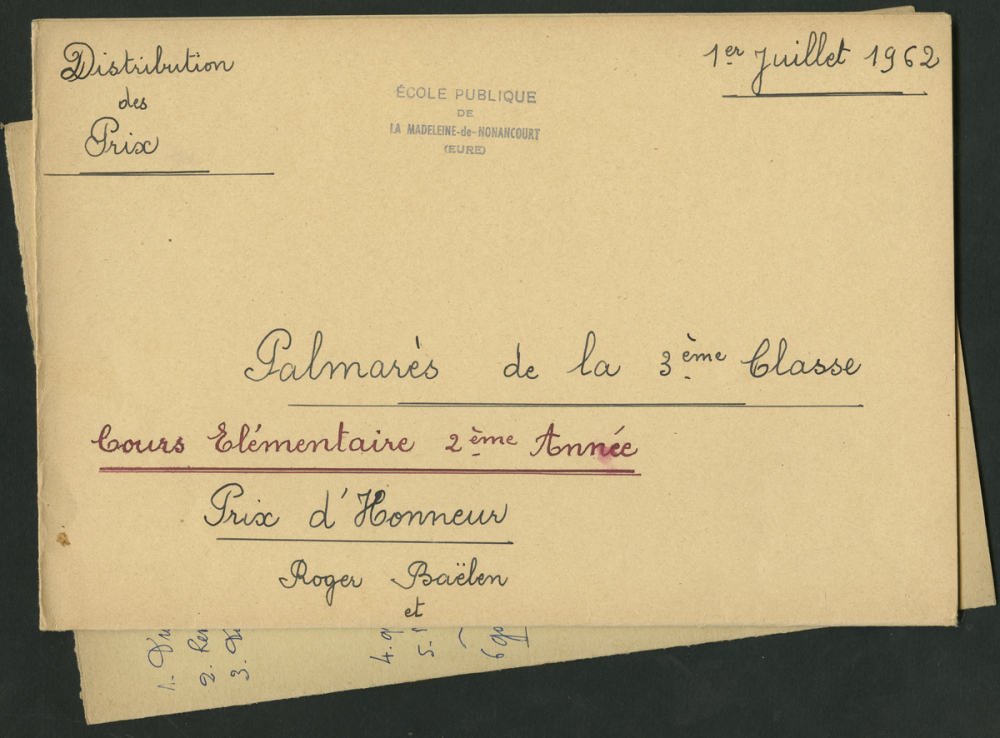 Distribution
des
Prix
ÉCOLE PUBLIQUE
DE
LA MADELEINE-de-NONANCOURT
(EURE)
1er Juillet 1962
Palmarès de la 3ème Classe
Cours Elémentaire 2ème Année
Prix d'Honneur
Roger Baëlen
et
1.
2.
3.
4.
5.
6